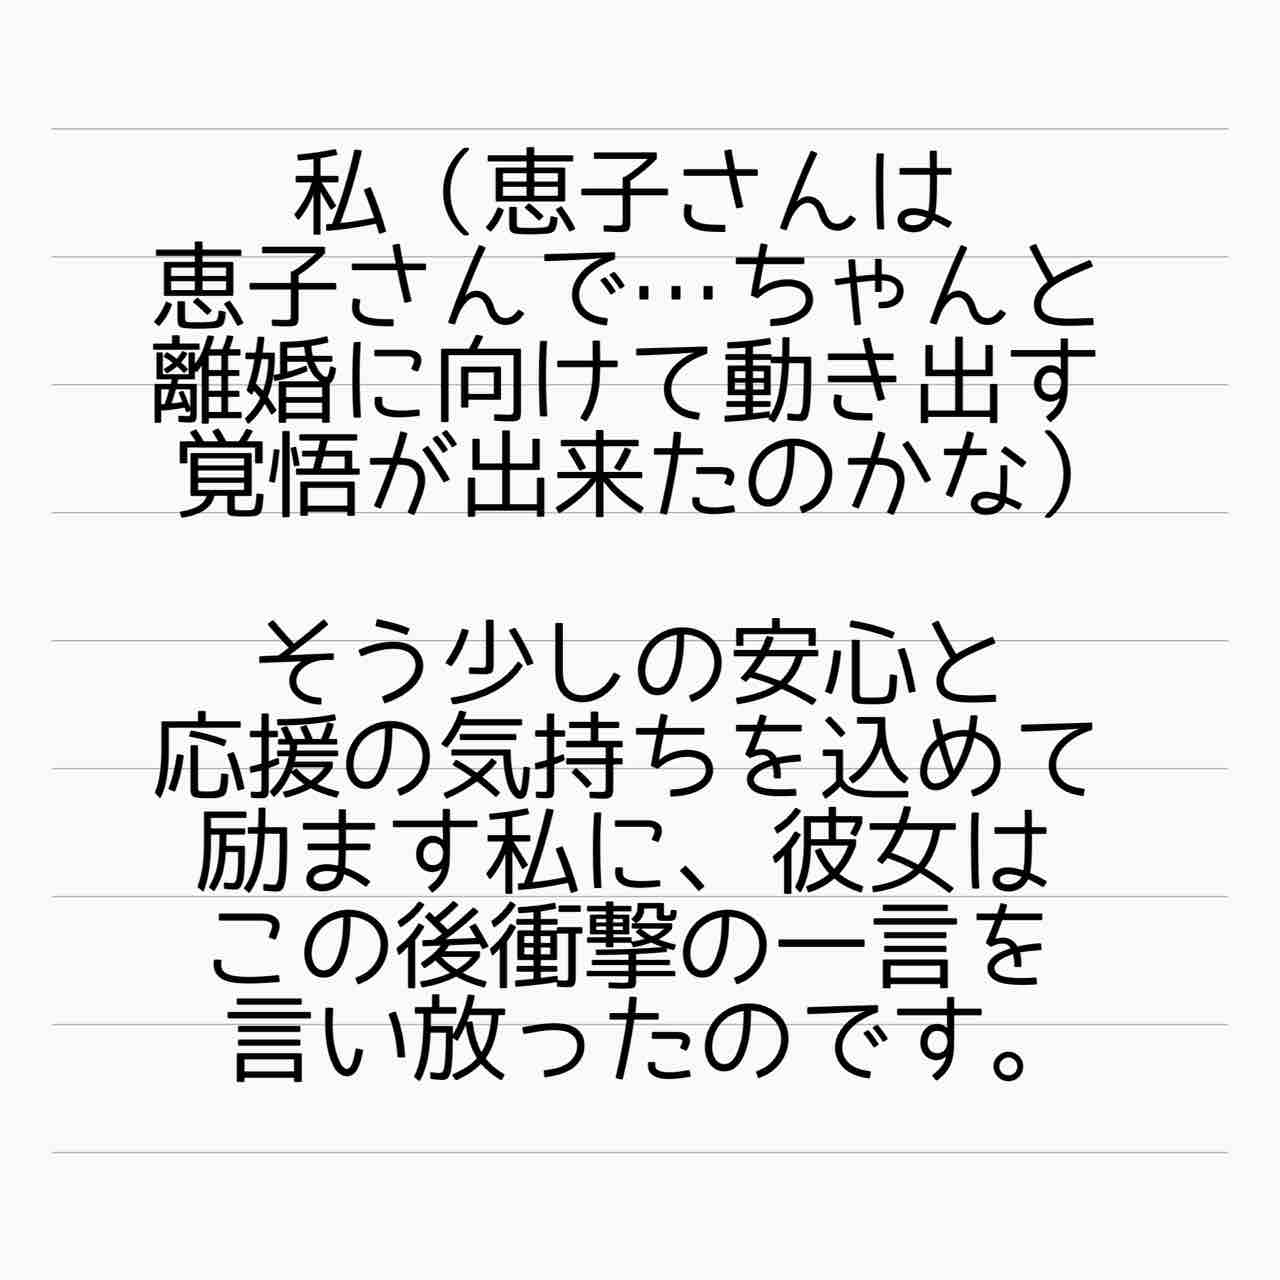 私（恵子さんは
恵子さんで…ちゃんと
離婚に向けて動き出す
覚悟が出来たのかな）
そう少しの安心と
応援の気持ちを込めて
励ます私に、彼女は
この後衝撃の一言を
言い放ったのです。